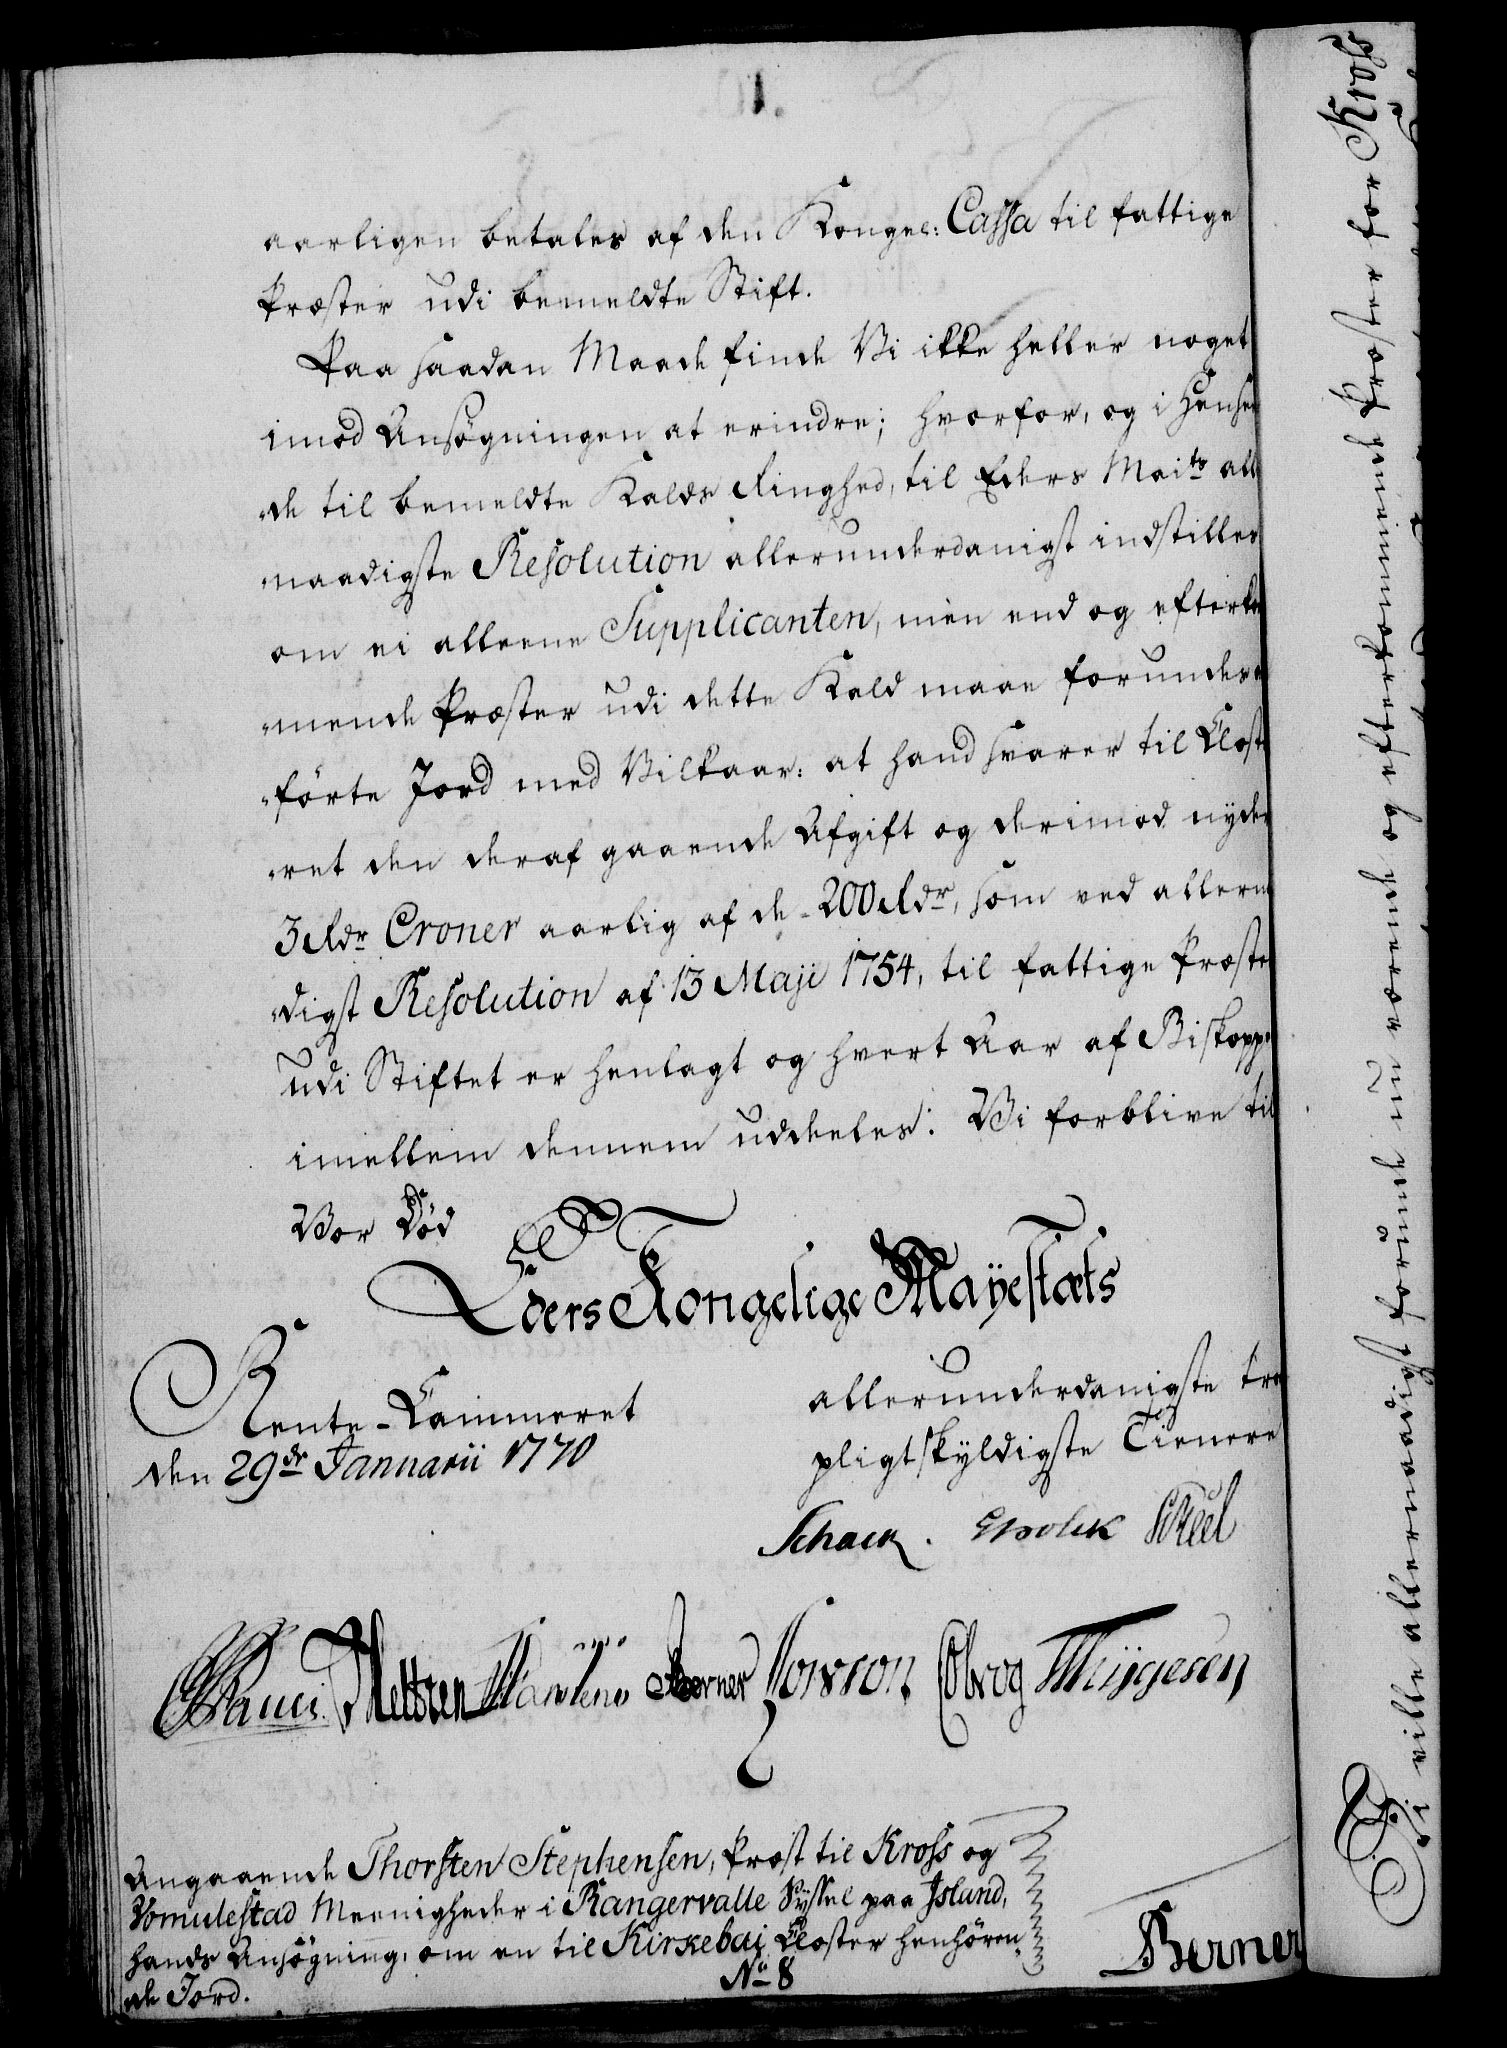 aarligen betales af den Kongel: Cassa til fattige
Præster udi bemeldte Stift.
Paa saadan Maade finde Vi ikke heller noget
imod Ansøgningen at erindre; hvorfor, og i Hense
„de til bemeldte Kalds Ringhed, til Eders Maits all
„naadigste Resolution allerunderdanigst indstilles
om ei alleene Supplicanten, men end og efterko
„mende Præster udi dette Kald maae forundes
„förte Jord med Vilkaar: at hand svarer til Closte
„ret den deraf gaaende Afgift og derimod nyder
3 Rdr Croner aarlig af de 200 Rdr, som ved allern
„digst Resolution af 13 Maji 1754, til fattige Præste
udi Stiftet er henlagt og hvert Aar af Biskopp
imellem dennem uddeeles. Vi forblive til
Vor Död
Eders Kongelige Mayestæts
Rente-Cammeret
den 29de Januarii 1770
allerunderdanigste tro
pligtskyldigste Tienere
Schack. Holck
Berner Cobrog Müygesen
Angaaende Thorsten Stephensen, Præst til Kross og
Vomulestad Meenigheder i Rangervalle Syssel paa Island,
hands Ansögning, om en til Kirkebai Closter henhören„
de Jord.
No 8
Berner
Vi ville allernaadigst forunde nu værende og efterkommende Præster for Kross